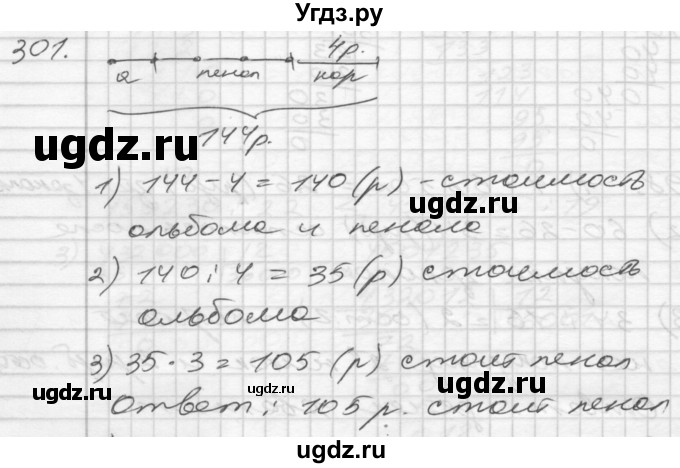 Угдз.ру
301.
4р.
а пенал кар
144р.
1) 144 - 4 = 140 (р) - стоимость
альбома и пенала
2) 140 : 4 = 35 (р) стоимость
альбома
3) 35 · 3 = 105 (р) стоит пенал
Ответ : 105 р. стоит пенал
ugdz.ru
ugdz.ru
ugdz.ru
ugdz.ru
ugdz.ru
ugdz.ru
ugdz.ru
ugdz.ru